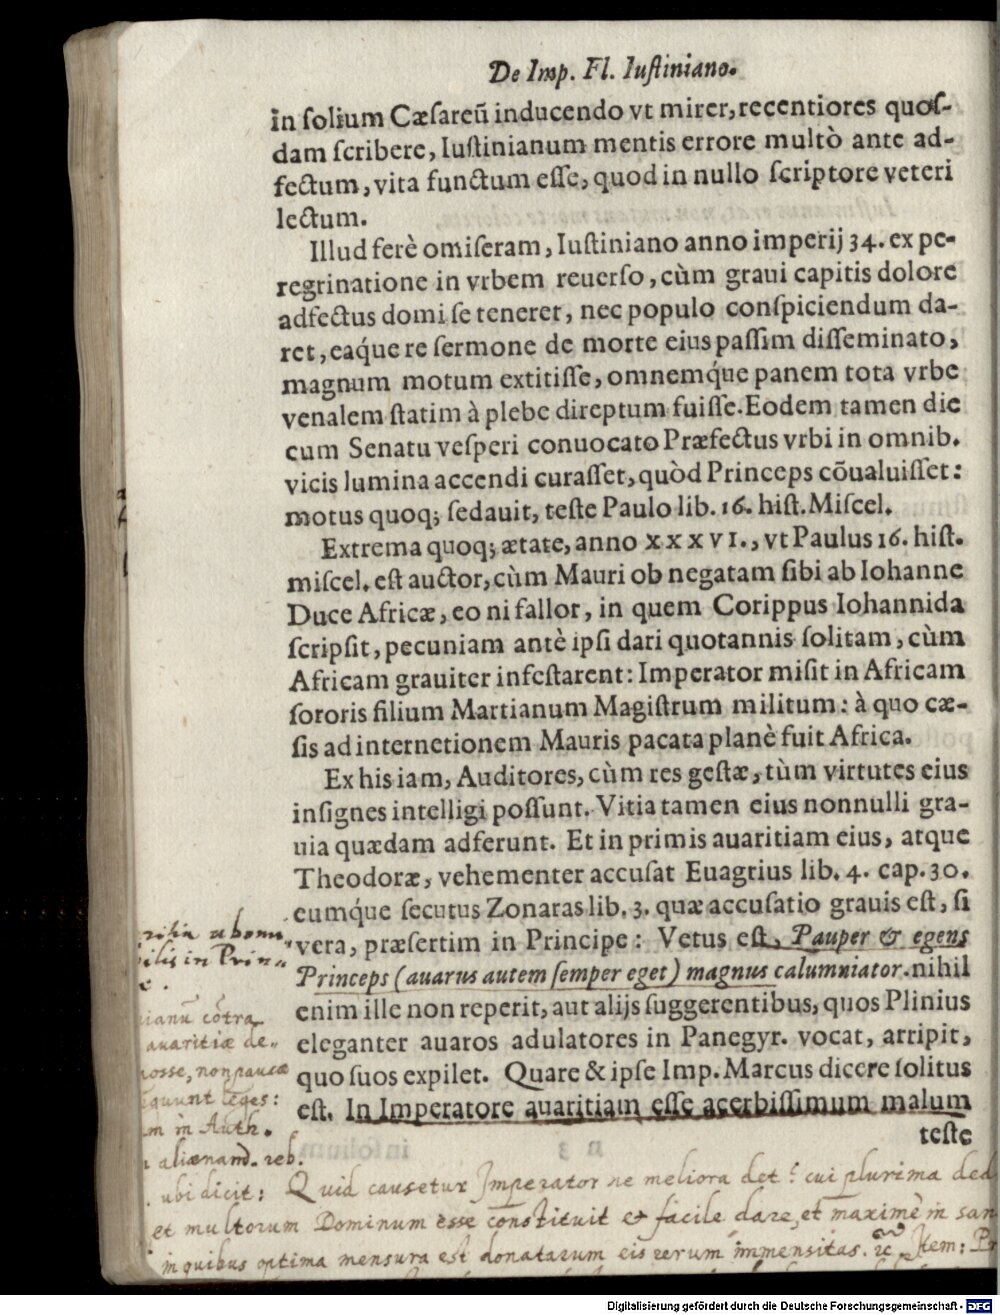 De Imp. Fl. Iuſtiniano.
in ſolium Cæſareũ inducendo vt mirer, recentiores quoſ-
dam ſcribere, Iuſtinianum mentis errore multò ante ad-
fectum, vita functum eſſe, quod in nullo ſcriptore veteri
lectum.
Illud ferè omiſeram, Iuſtiniano anno imperij 34. ex pe-
regrinatione in vrbem reuerſo, cùm graui capitis dolore
adfectus domi ſe teneret, nec populo conſpiciendum da-
ret, eaq́ue re ſermone de morte eius paſſim diſſeminato,
magnum motum extitiſſe, omnemq́ue panem tota vrbe
venalem ſtatim à plebe direptum fuiſſe. Eodem tamen die
cum Senatu veſperi conuocato Præfectus vrbi in omnib.
vicis lumina accendi curaſſet, quòd Princeps cõualuiſſet:
motus quoq; ſedauit, teſte Paulo lib. 16. hiſt. Miſcel.
Extrema quoq; ætate, anno XXXVI., vt Paulus 16. hiſt.
miſcel. eſt auctor, cùm Mauri ob negatam ſibi ab Iohanne
Duce Africæ, eo ni fallor, in quem Corippus Iohannida
ſcripſit, pecuniam antè ipſi dari quotannis ſolitam, cùm
Africam grauiter infeſtarent: Imperator miſit in Africam
ſororis filium Martianum Magiſtrum militum: à quo cæ-
ſis ad internetionem Mauris pacata planè fuit Africa.
Ex his iam, Auditores, cùm res geſtæ, tùm virtutes eius
inſignes intelligi poſſunt. Vitia tamen eius nonnulli gra-
uia quædam adferunt. Et in primis auaritiam eius, atque
Theodoræ, vehementer accuſat Euagrius lib. 4. cap. 30.
eumq́ue ſecutus Zonaras lib. 3. quæ accuſatio grauis eſt, ſi
vera, præſertim in Principe: Vetus eſt, Pauper & egens
Princeps (auarus autem ſemper eget) magnus calumniator. nihil
enim ille non reperit, aut alijs ſuggerentibus, quos Plinius
eleganter auaros adulatores in Panegyr. vocat, arripit,
quo ſuos expilet. Quare & ipſe Imp. Marcus dicere ſolitus
eſt. In Imperatore auaritiam eſſe acerbiſſimum malum
teſte
in Prin-
cõtra
avaritiæ de-
nosse, non paucæ
leges:
in Auth.
aliænand. reb.
ubi dicit: Quid causetur Imperator ne meliora det? cui plurima ded
et multorum Dominum esse constituit et facile dare, et maximè in san
in quibus optima mensura est donatarum eis rerum immensitas. Item:
Digitalisierung gefördert durch die Deutsche Forschungsgemeinschaft - DFG